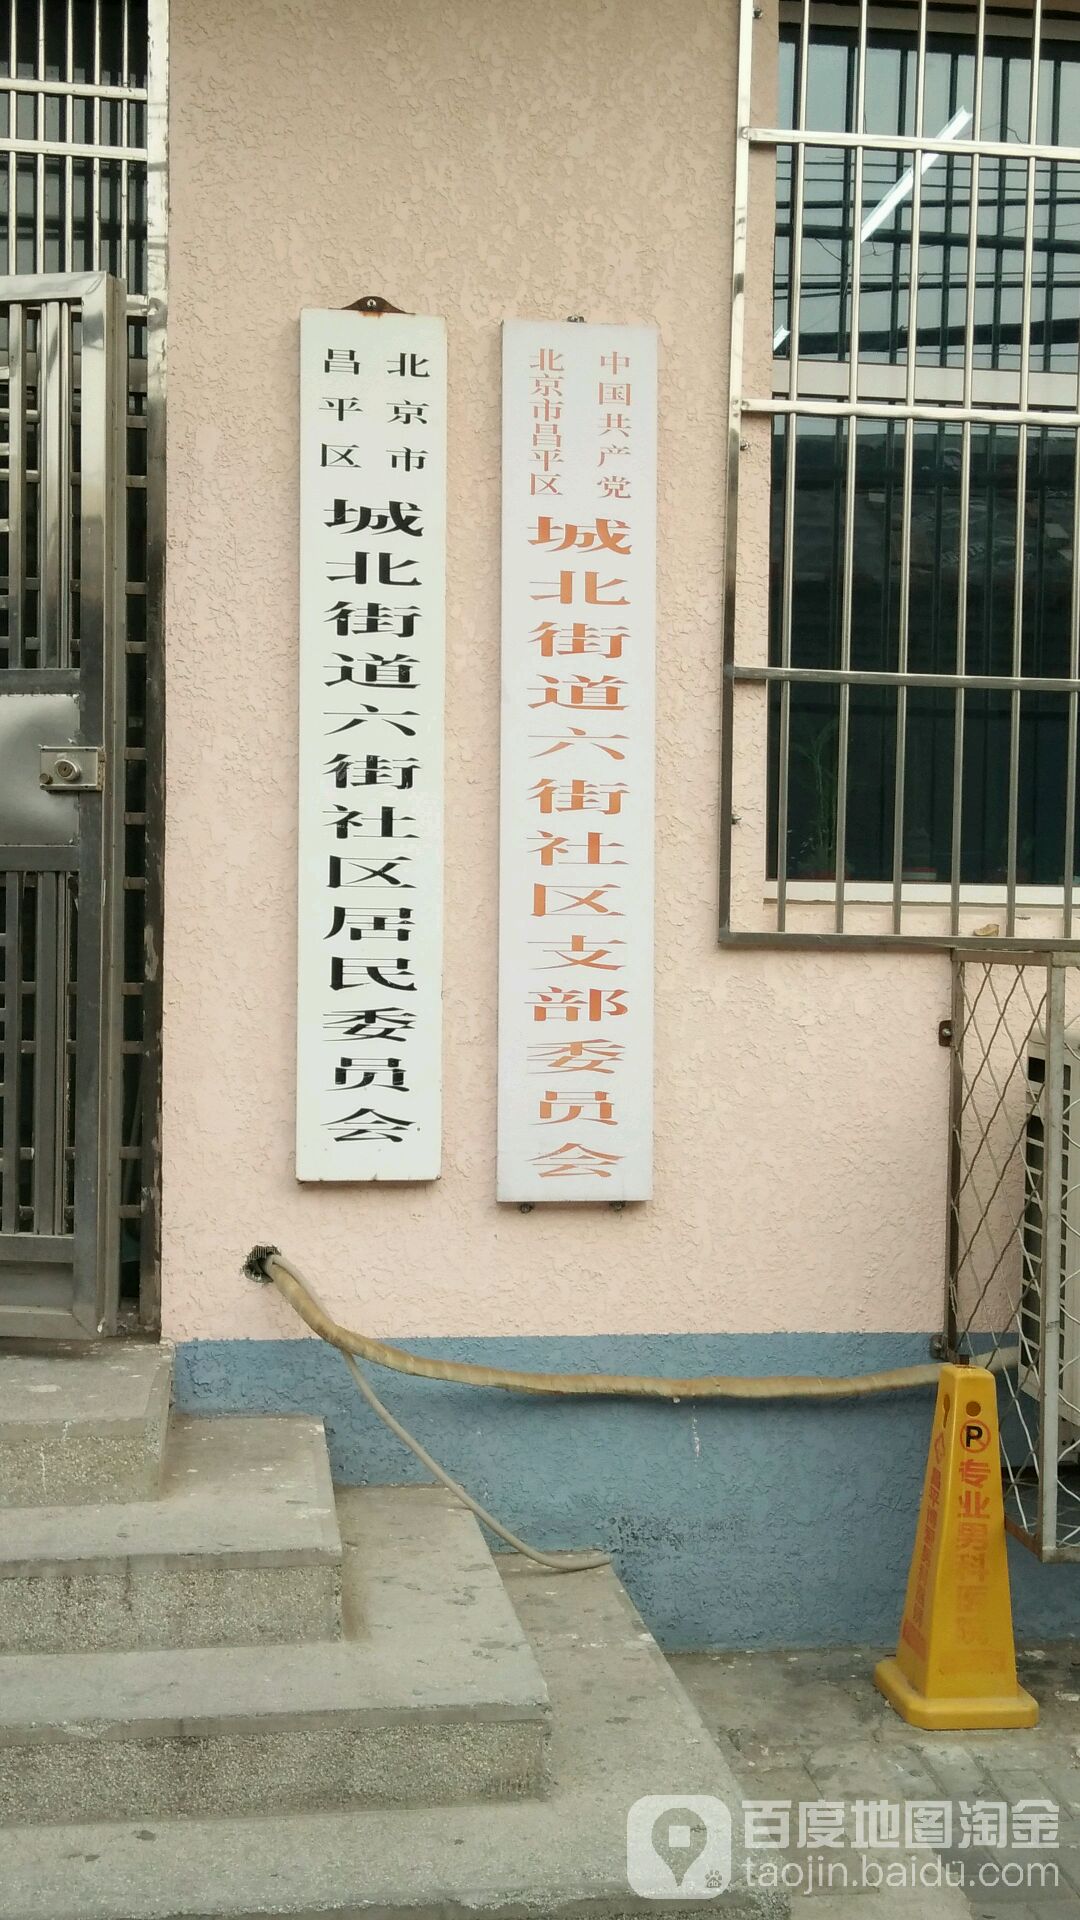 北京市
昌平区
城北街道六街社区居民委员会
中国共产党
北京市昌平区
城北街道六街社区支部委员会
P
专业男科医院
百度地图淘金
taojin.baidu.com